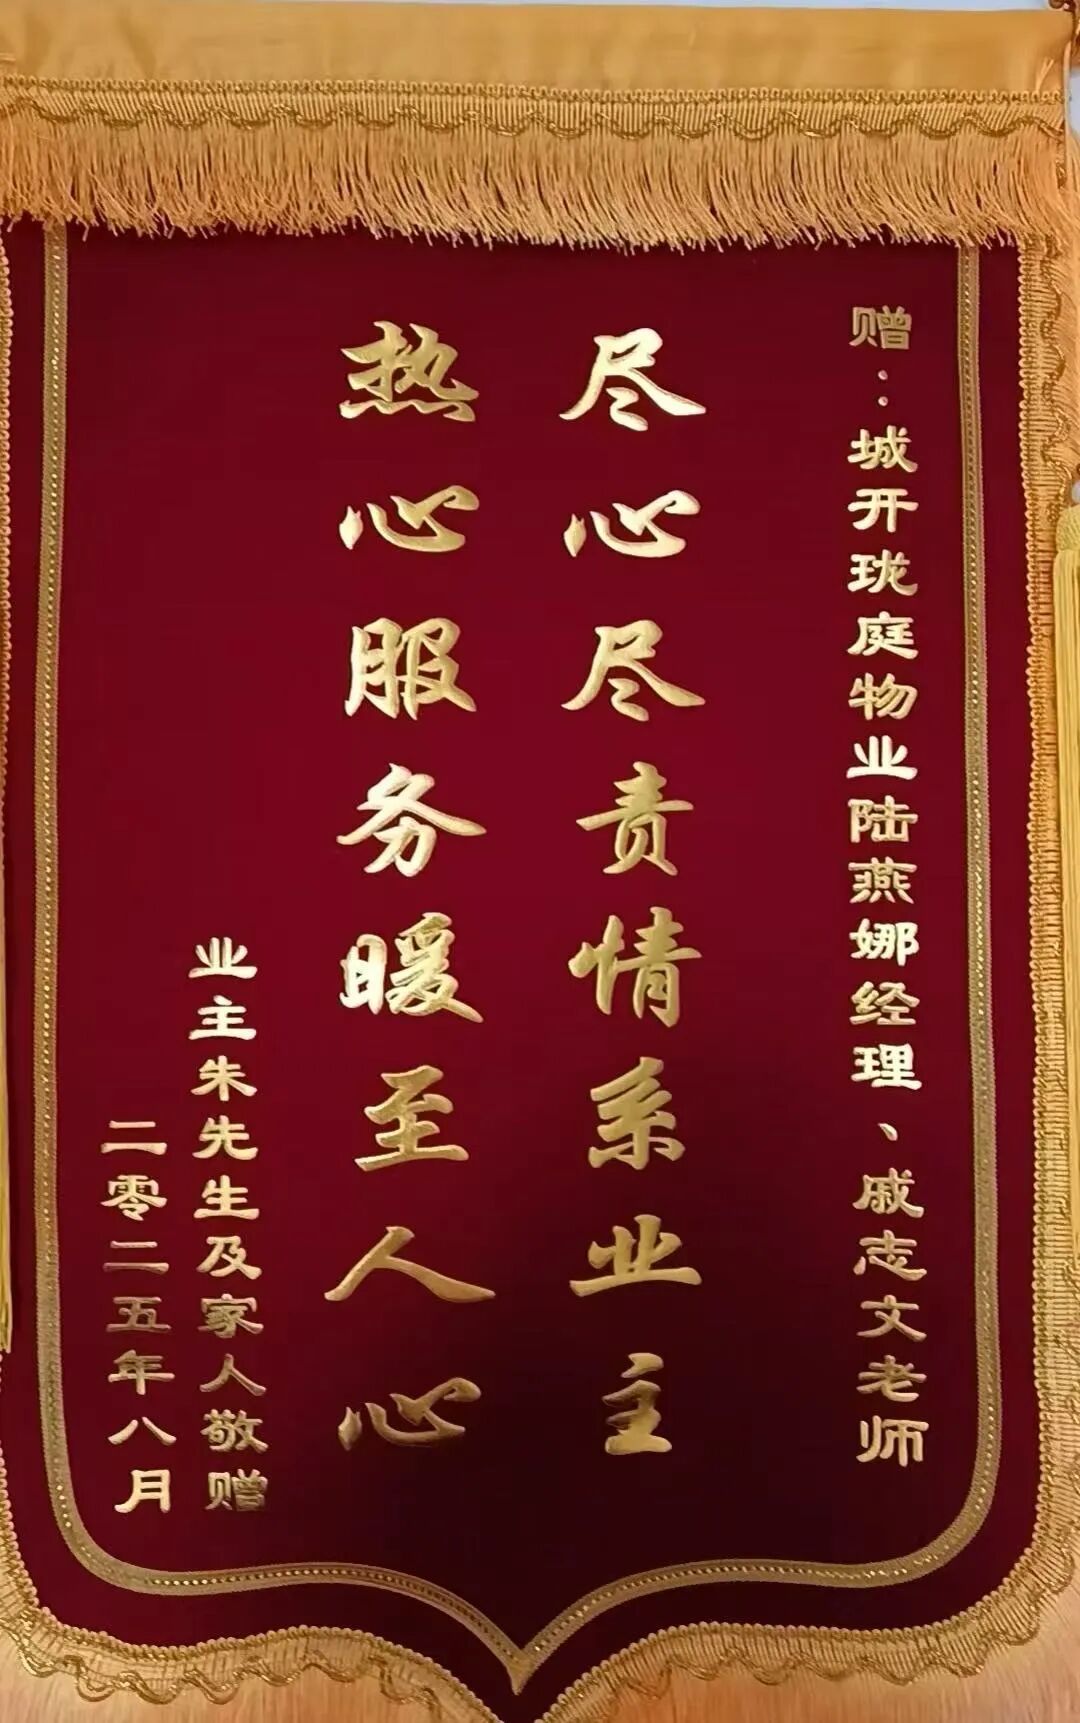 赠：城开珑庭物业陆燕娜经理、戚志文老师
尽心尽责情系业主
热心服务暖至人心
业主朱先生及家人敬赠
二零二五年八月